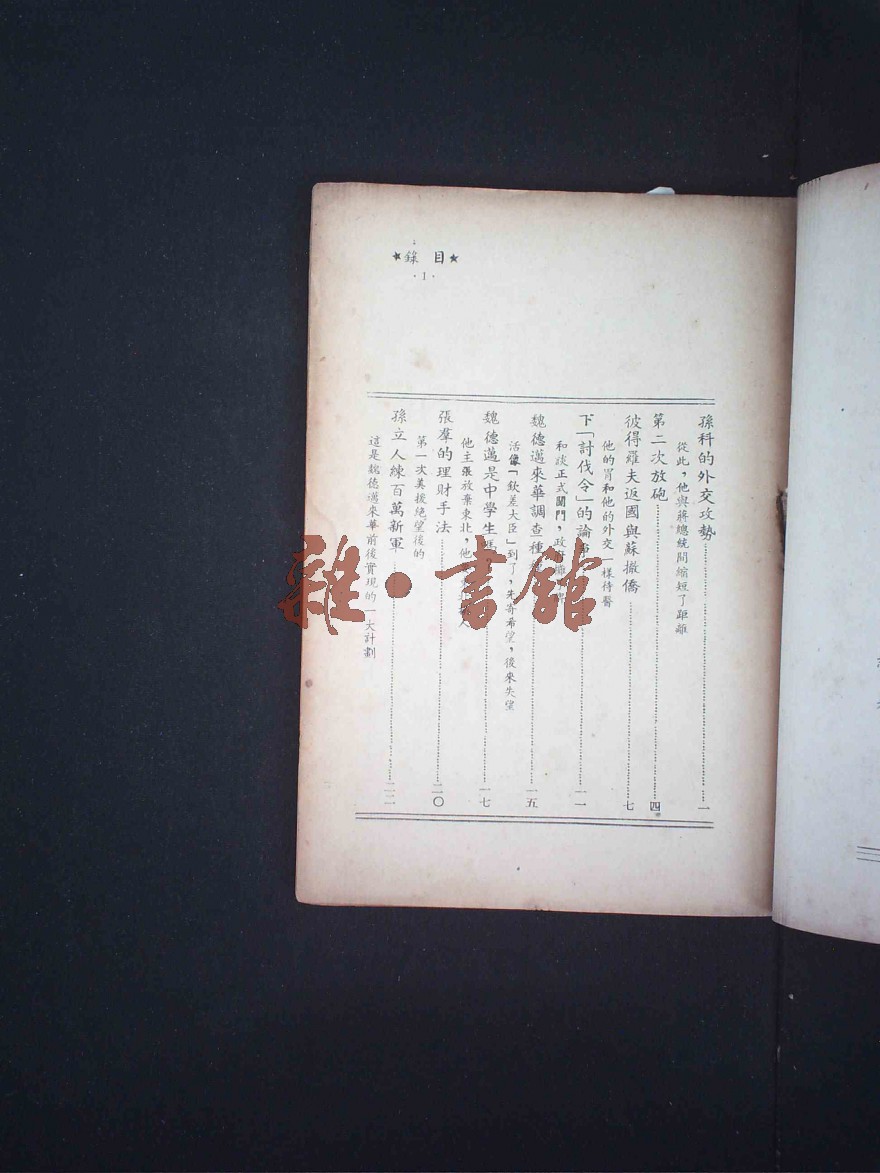 ★錄 目★
·1·
孫科的外交攻勢……一
從此，他與蔣總統間縮短了距離
第二次放砲……四
彼得羅夫返國與蘇撤僑……七
他的胃和他的外交一樣待醫
下「討伐令」的論……一一
和談正式關門，政府
魏德邁來華調查種……一五
活像「欽差大臣」到了，先寄希望，後來失望
魏德邁是中學生……一七
他主張放棄東北，他人
張羣的理財手法……二〇
第一次美援絕望後的
孫立人練百萬新軍……二二
這是魏德邁來華前後實現的一大計劃
雜·書館